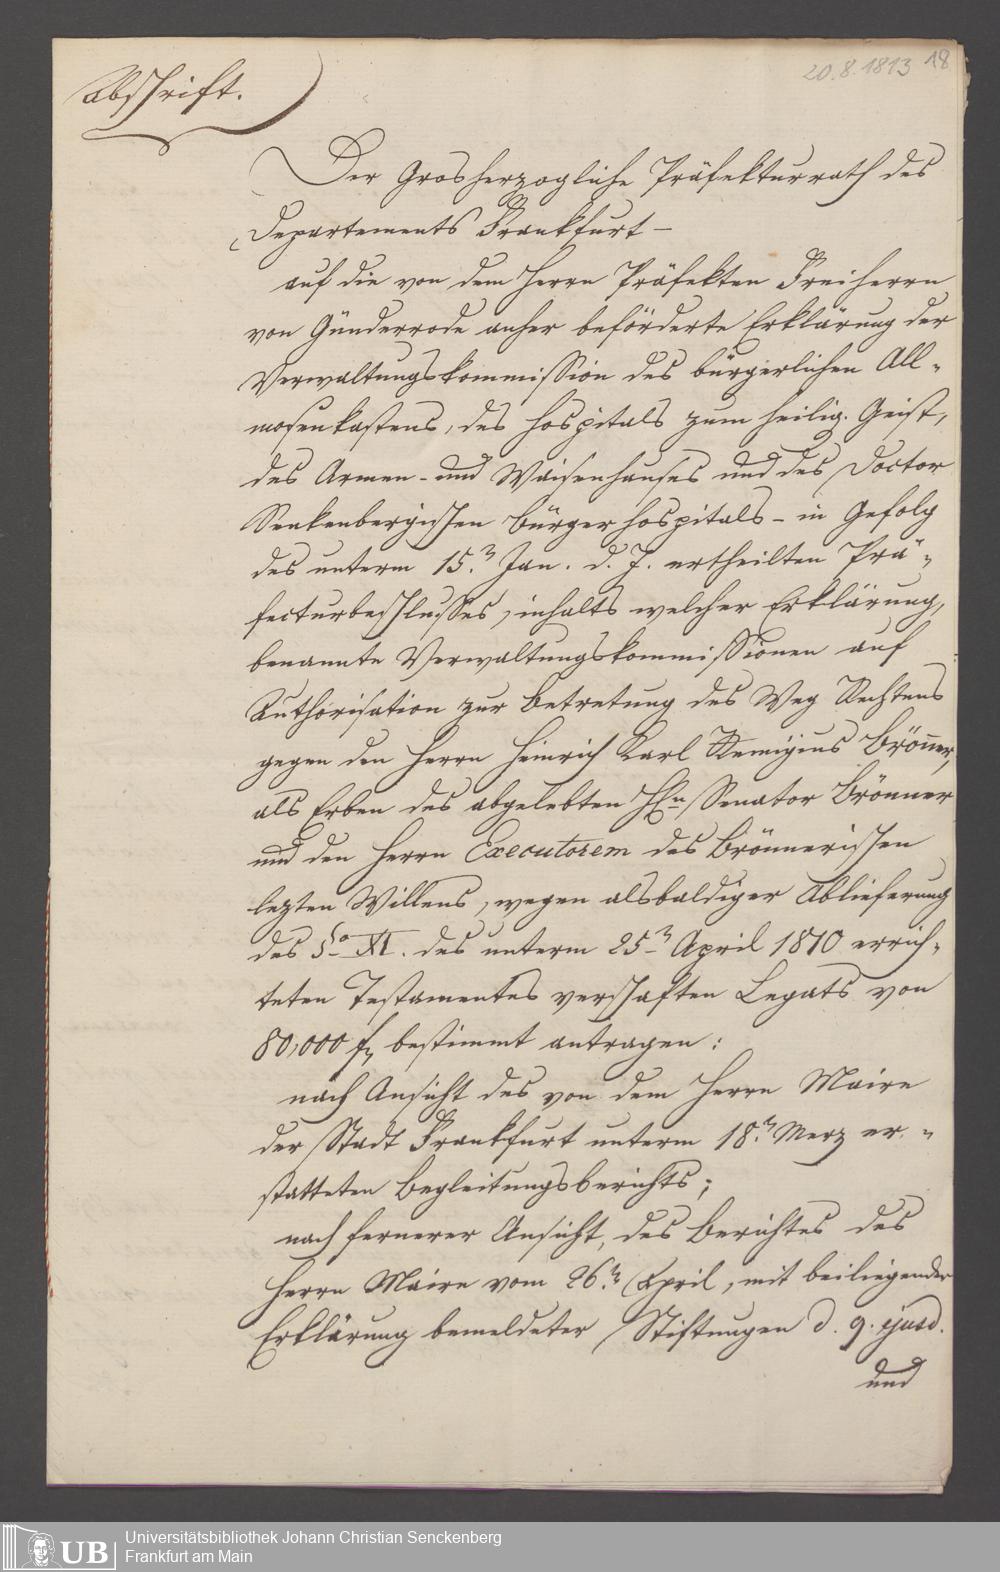 20.8.1813 18
Abschrift.
Der Grosherzogliche Präfekturrath des
Departements Frankfurt –
auf die von dem Herrn Präfekten Freiherrn
von Günderrode anher beförderte Erklärung der
Verwaltungskommission des bürgerlichen All-
mosenkastens, des Hospitals zum heilig. Geist,
des Armen- und Waisenhauses und des Doctor
Senkenbergischen Bürgerhospitals – in Gefolg
des unterm 15.n Jan. d. J. ertheilten Prä-
fecturbeschlusses, inhalts welcher Erklärung,
benannte Verwaltungskommissionen auf
Authorisation zur Betretung des Weg Rechtens
gegen den Herrn Heinrich Karl Remigius Brönner,
als Erben des abgelebten Hn Senator Brönner
und den Herrn Executorem des Brönnerischen
lezten Willens, wegen alsbaldiger Ablieferung
des §o XI. des unterm 25n April 1810 errich-
teten Testamentes verschafften Legats von
80,000 f, bestimmt antragen:
nach Ansicht des von dem Herrn Maire
der Stadt Frankfurt unterm 18.n Merz er-
statteten Begleitungsberichts;
nach fernerer Ansicht, des Berichtes des
Herrn Maire vom 26.n April, mit beiliegender
Erklärung bemeldeter Stiftungen d. 9. ejusd.
und
UB
Universitätsbibliothek Johann Christian Senckenberg
Frankfurt am Main